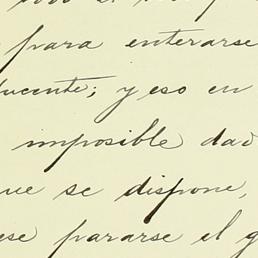 para enterarse
ducente; y eso en
imposible dad
que se dispone,
ese pararse el g